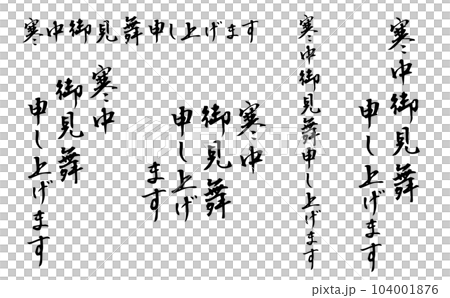 寒中御見舞申し上げます
寒中
御見舞
申し上げます
寒中
御見舞
申し上げ
ます
寒中御見舞申し上げます
寒中御見舞
申し上げます
PIXTA
104001876